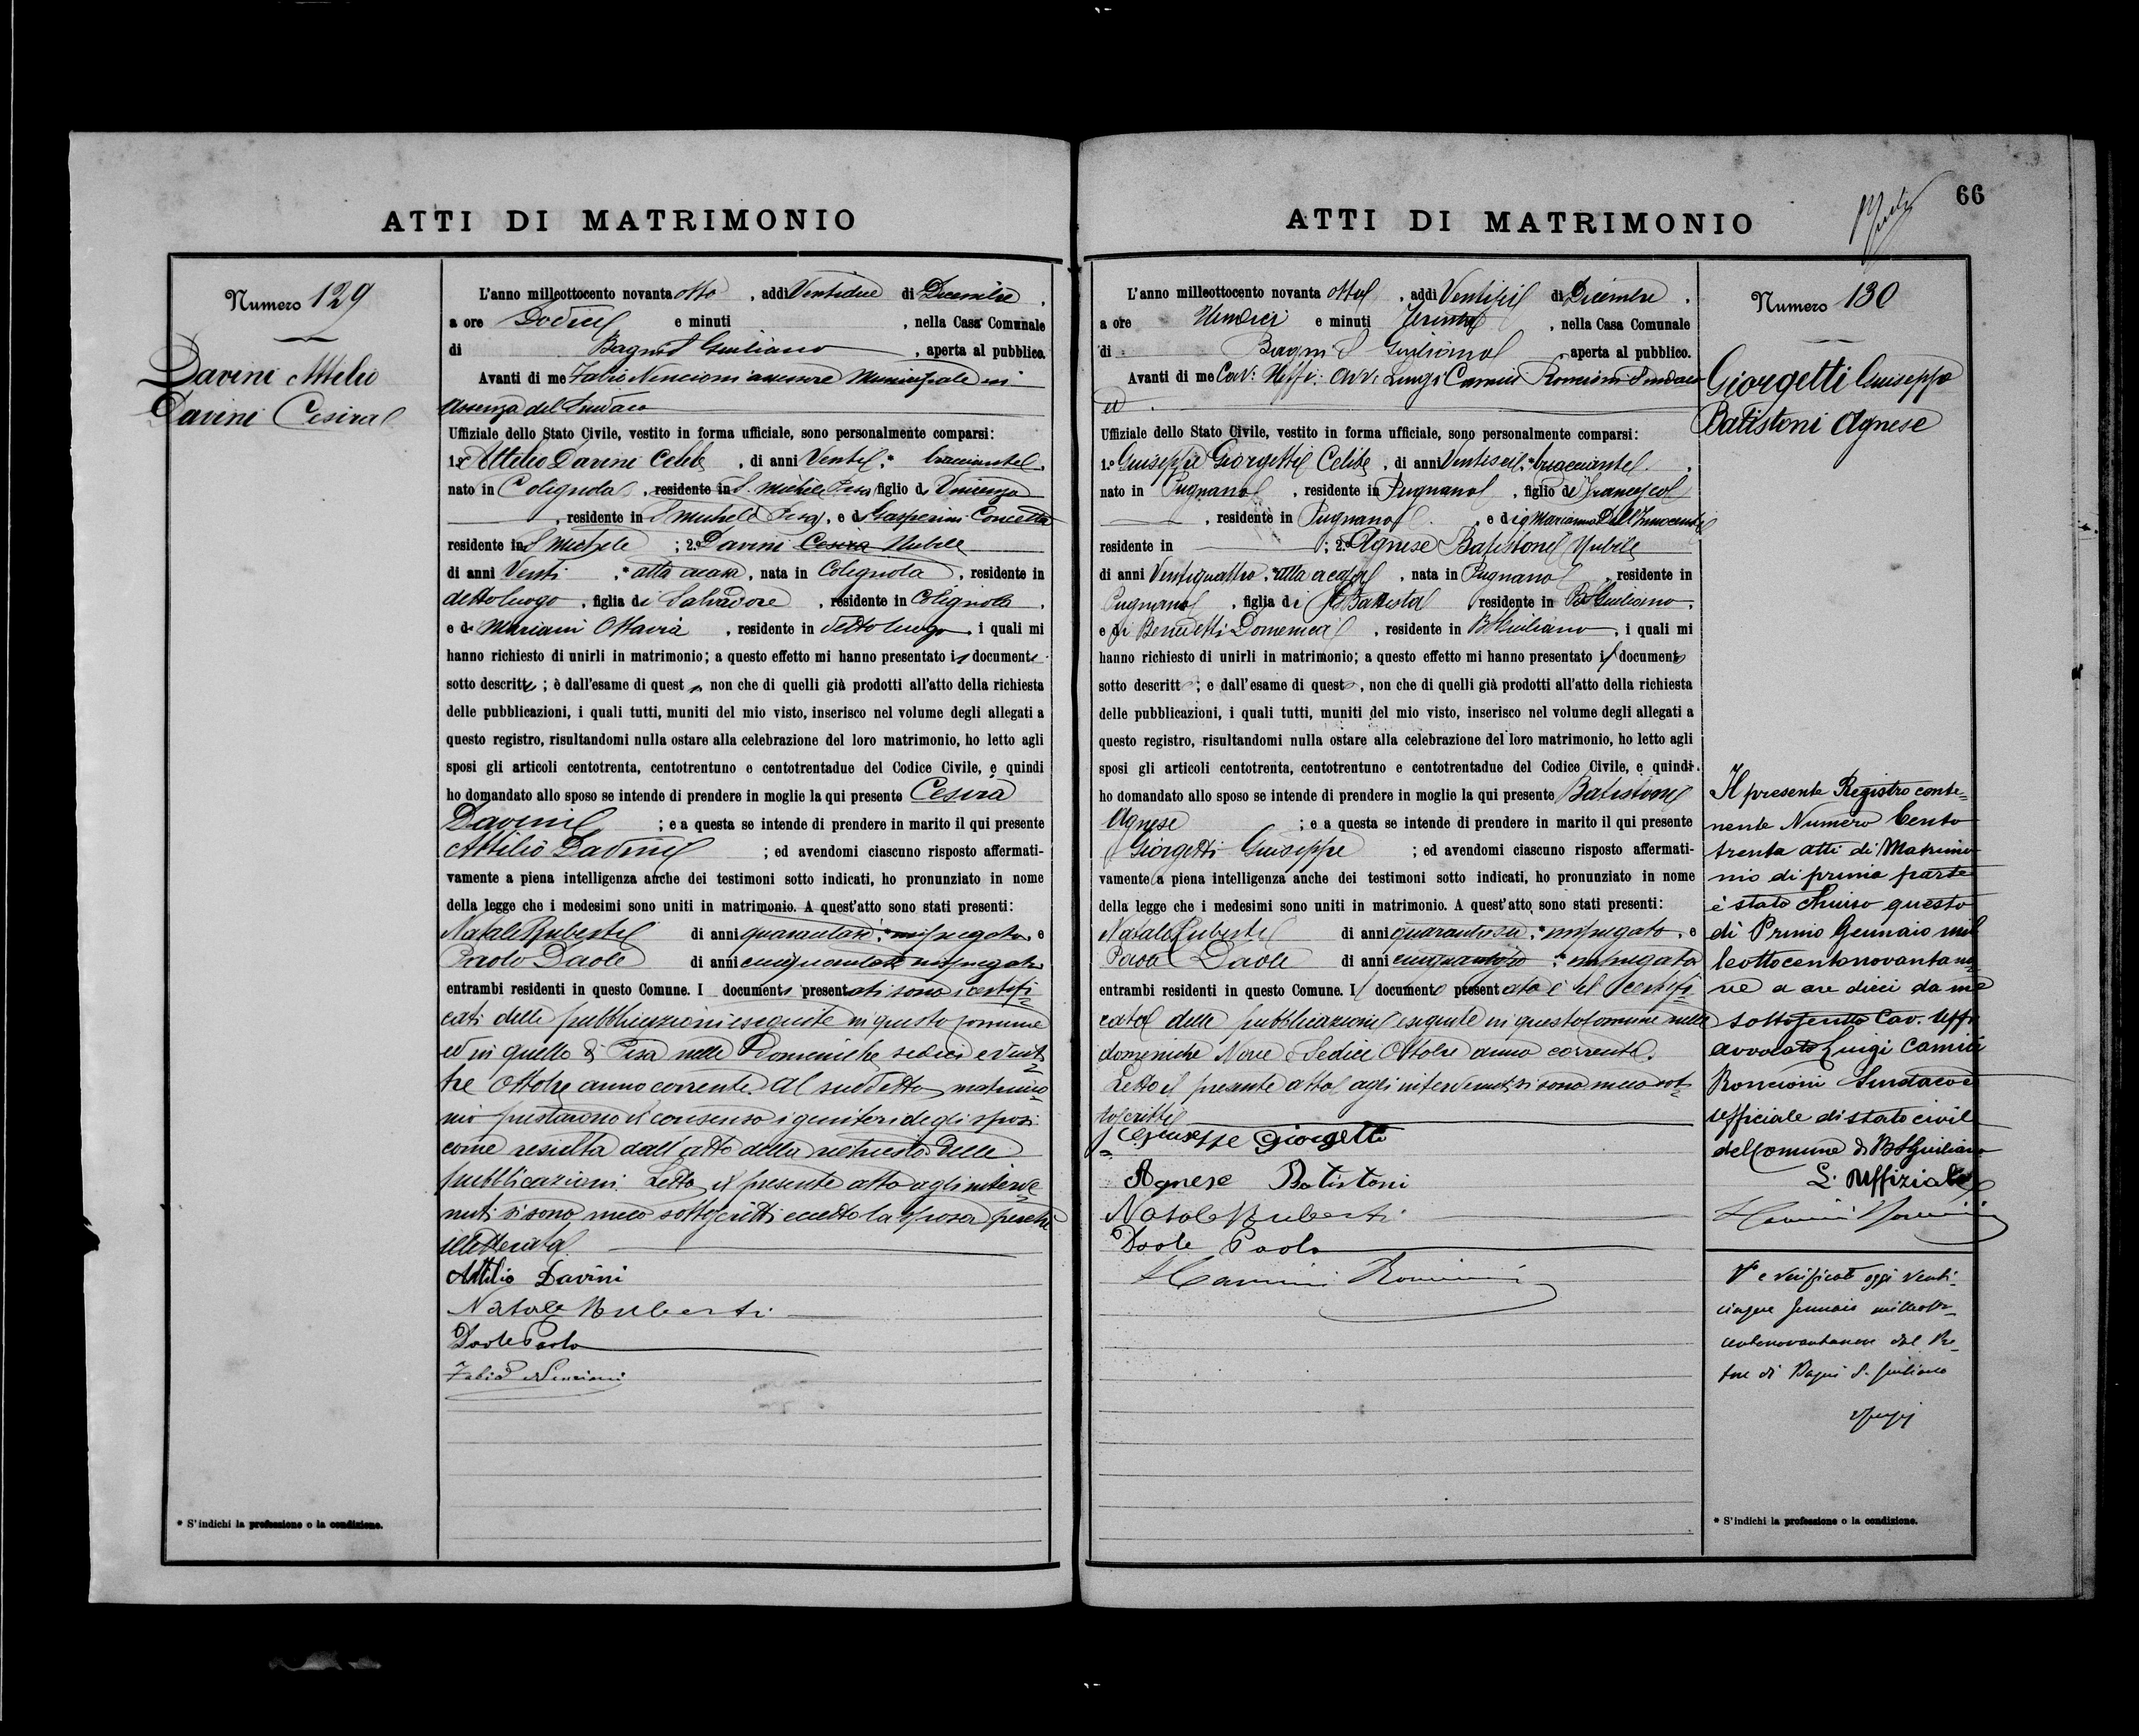 ATTI DI MATRIMONIO
Numero 129
Davini Attilio
Davini Cesira
L'anno milleottocento novanta otto , addì Ventidue di Dicembre ,
a ore Dodici e minuti , nella Casa Comunale
di Bagni S Giuliano , aperta al pubblico.
Avanti di me Fabio Nencioni assessore Municipale in
assenza del Sindaco
Uffiziale dello Stato Civile, vestito in forma ufficiale, sono personalmente comparsi:
1.º Attilio Davini Celibe , di anni Venti , * bracciante ,
nato in Colignola , residente in S. Michele Pisa figlio di Vincenzo
, residente in S Michele Pisa , e di Gasperini Concetta
residente in S Michele ; 2.º Davini Cesira Nubile
di anni Venti , * atta a casa , nata in Colignola , residente in
detto luogo , figlia di Salvadore , residente in Colignola ,
e di Mariani Ottavia , residente in detto luogo , i quali mi
hanno richiesto di unirli in matrimonio; a questo effetto mi hanno presentato i documenti
sotto descritti ; è dall'esame di quest , non che di quelli già prodotti all'atto della richiesta
delle pubblicazioni, i quali tutti, muniti del mio visto, inserisco nel volume degli allegati a
questo registro, risultandomi nulla ostare alla celebrazione del loro matrimonio, ho letto agli
sposi gli articoli centotrenta, centotrentuno e centotrentadue del Codice Civile, e quindi
ho domandato allo sposo se intende di prendere in moglie la qui presente Cesira
Davini ; e a questa se intende di prendere in marito il qui presente
Attilio Davini ; ed avendomi ciascuno risposto affermati-
vamente a piena intelligenza anche dei testimoni sotto indicati, ho pronunziato in nome
della legge che i medesimi sono uniti in matrimonio. A quest'atto sono stati presenti:
Natale Ruberti di anni quarantasei , * impiegato , e
Paolo Daole di anni cinquantasei impiegato
entrambi residenti in questo Comune. I documenti presentati sono i certifi=
cati delle pubblicazioni eseguite in questo comune
ed in quello di Pisa nelle Domeniche sedici e venti=
tre Ottobre anno corrente. Al suddetto matrimo=
nio prestarono il consenso i genitori degli sposi
come resulta dall'atto della richiesta delle
pubblicazioni. Letto il presente atto agli interve=
nuti si sono meco sottoscritti eccetto la sposa perché
illetterata.
Attilio Davini
Natale Ruberti
Daole Paolo
Fabio Nencioni
* S'indichi la professione o la condizione.
66
ATTI DI MATRIMONIO
L'anno milleottocento novanta otto , addì Ventisei di Dicembre ,
a ore Undici e minuti trenta , nella Casa Comunale
di Bagni S Giuliano , aperta al pubblico.
Avanti di me Cav: Uffi: Avv. Luigi Camici Roncioni Sindaco
ed
Uffiziale dello Stato Civile, vestito in forma ufficiale, sono personalmente comparsi:
1.º Giuseppe Giorgetti Celibe , di anni Ventisei , * bracciante ,
nato in Pugnano , residente in Pugnano , figlio di Francesco
, residente in Pugnano , e di Marianna Dell'Innocenti
residente in ; 2.º Agnese Batistoni Nubile
di anni Ventiquattro , * atta a casa , nata in Pugnano , residente in
Pugnano , figlia di Battista residente in BS Giuliano ,
e di Benedetti Domenica , residente in BS Giuliano , i quali mi
hanno richiesto di unirli in matrimonio; a questo effetto mi hanno presentato il documento
sotto descritto ; e dall'esame di questo , non che di quelli già prodotti all'atto della richiesta
delle pubblicazioni, i quali tutti, muniti del mio visto, inserisco nel volume degli allegati a
questo registro, risultandomi nulla ostare alla celebrazione del loro matrimonio, ho letto agli
sposi gli articoli centotrenta, centotrentuno e centotrentadue del Codice Civile, e quindi
ho domandato allo sposo se intende di prendere in moglie la qui presente Batistoni
Agnese ; e a questa se intende di prendere in marito il qui presente
Giorgetti Giuseppe ; ed avendomi ciascuno risposto affermati-
vamente a piena intelligenza anche dei testimoni sotto indicati, ho pronunziato in nome
della legge che i medesimi sono uniti in matrimonio. A quest'atto sono stati presenti:
Natale Ruberti di anni quarantasei , * impiegato , e
Paolo Daole di anni cinquantasei , * impiegato
entrambi residenti in questo Comune. Il documento presentato è il certifi=
cato delle pubblicazioni eseguite in questo Comune nelle
domeniche Nove e Sedici Ottobre anno corrente.
Letto il presente atto agli intervenuti si sono meco sot=
toscritti
Giuseppe Giorgetti
Agnese Batistoni
Natale Ruberti
Daole Paolo
L Camici Roncioni
Numero 130
Giorgetti Giuseppe
Batistoni Agnese
Il presente Registro conte=
nente Numero Cento
trenta atti di Matrimo
nio di prima parte
è stato chiuso questo
dì Primo Gennaio mil
leottocentonovantano
ve a ore dieci da me
sottoscritto Cav. Uffi
avvocato Luigi Camici
Roncioni Sindaco e
Ufficiale di stato civile
del Comune di BS Giuliano
L'Uffiziale
L Camici Roncioni
V° e verificato oggi venti-
cinque Gennaio milleotto-
centonovantanove dal Pre-
tore di Bagni S. Giuliano
* S'indichi la professione o la condizione.